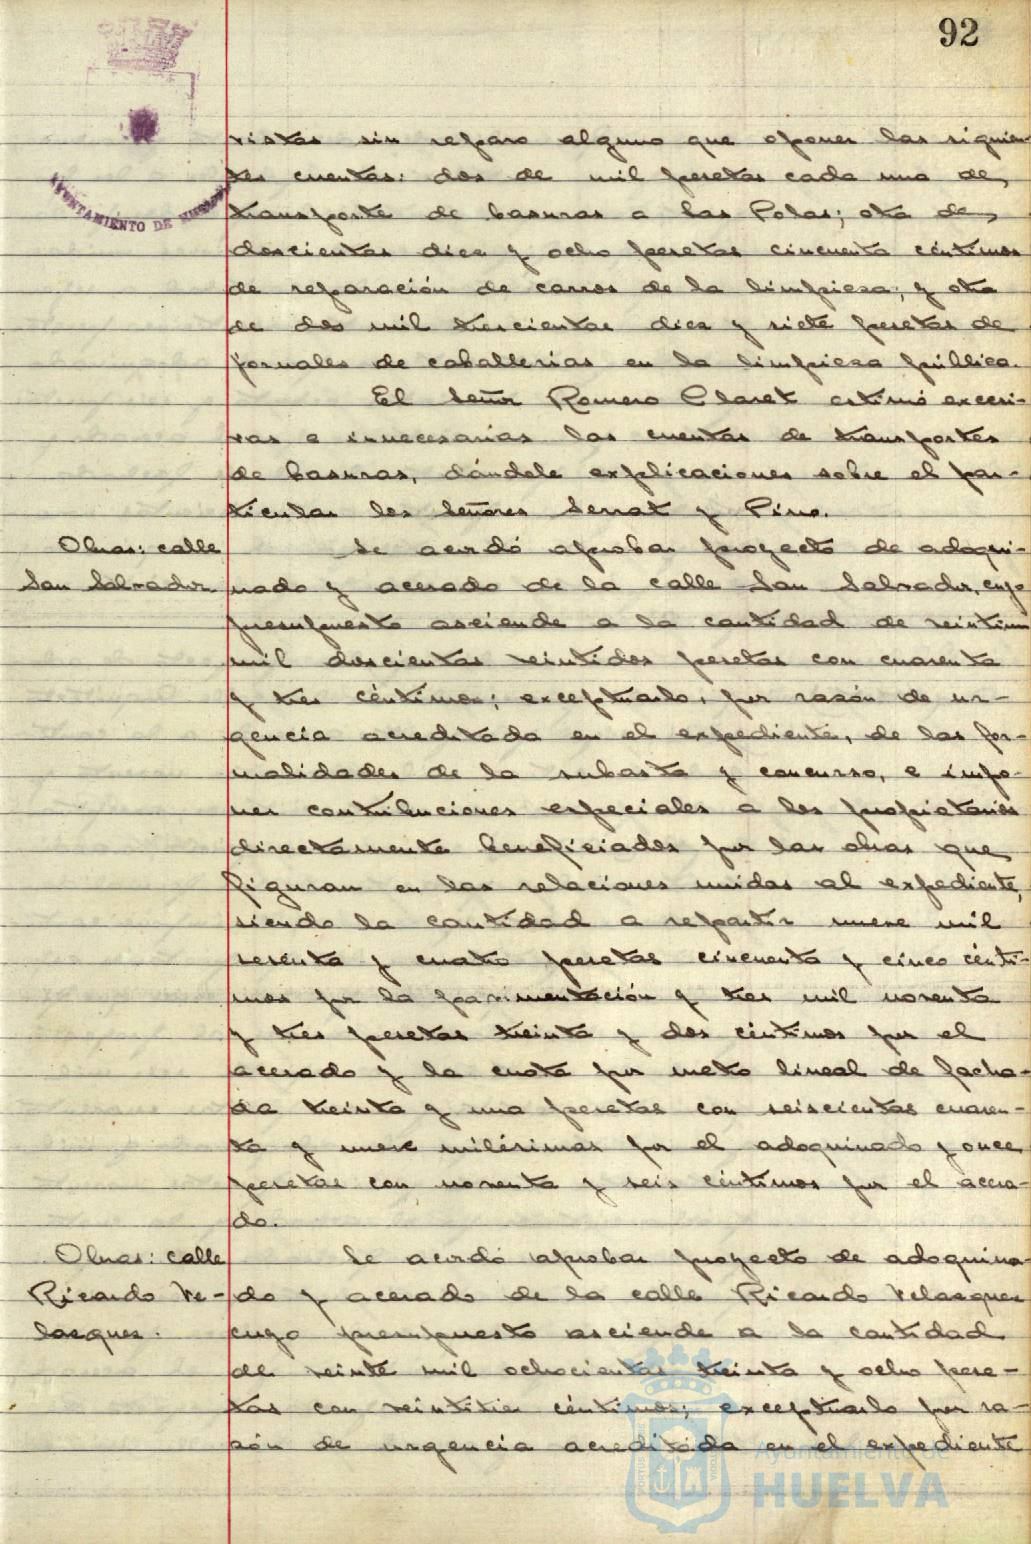 92
AYUNTAMIENTO DE HUELVA
vistas sin reparo alguno que oponer las siguien-
tes cuentas: dos de mil pesetas cada una de
transporte de basuras a las Colas; otra de
doscientas diez y ocho pesetas cincuenta céntimos
de reparación de carros de la limpieza; y otra
de dos mil trescientas diez y siete pesetas de
jornales de caballerias en la limpieza pública.
El Señor Romero Claret estimó excesi-
vas e innecesarias las cuentas de transportes
de basuras, dándole explicaciones sobre el par-
ticular los Señores Serrat y Pino.
Obras: calle
San Salvador
Se acordó aprobar proyecto de adoqui-
nado y acerado de la calle San Salvador, cuyo
presupuesto asciende a la cantidad de veintiun
mil doscientas veintidos pesetas con cuarenta
y tres céntimos; exceptuarlo, por razón de ur-
gencia acreditada en el expediente, de las for-
malidades de la subasta y concurso, e impo-
ner contribuciones especiales a los propietarios
directamente beneficiados por las obras que
figuran en las relaciones unidas al expediente,
siendo la cantidad a repartir nueve mil
sesenta y cuatro pesetas cincuenta y cinco cénti-
mos por la pavimentación y tres mil noventa
y tres pesetas treinta y dos céntimos por el
acerado y la cuota por metro lineal de facha-
da treinta y una pesetas con seiscientas cuaren-
ta y nueve milésimas por el adoquinado y once
pesetas con noventa y seis céntimos por el acera-
do.
Obras: calle
Ricardo Ve-
lasquez.
Se acordó aprobar proyecto de adoquina-
do y acerado de la calle Ricardo Velasquez
cuyo presupuesto asciende a la cantidad
de veinte mil ochocientas treinta y ocho pese-
tas con veintitres céntimos; exceptuarlo por ra-
zón de urgencia acreditada en el expediente
Ayuntamiento de
HUELVA